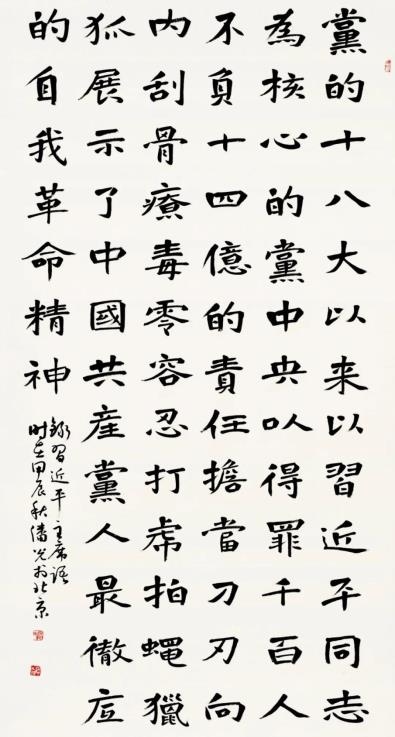 黨的十八大以来以習近平同志
為核心的黨中央以得罪千百人
不負十四億的責任擔當刀刃向
内刮骨療毒零容忍打虎拍蠅獵
狐展示了中國共産黨人最徹底
的自我革命精神
錄習近平主席語
时在甲辰秋潘於北京